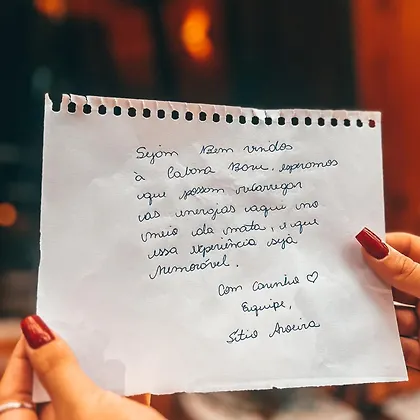 Sejam Bem vindos
à Cabana Bone, esperamos
que possam recarregar
as energias aqui no
meio da mata, e que
essa experiência seja
Memorável.
Com Carinho ♡
Equipe,
Sítio Aroeira